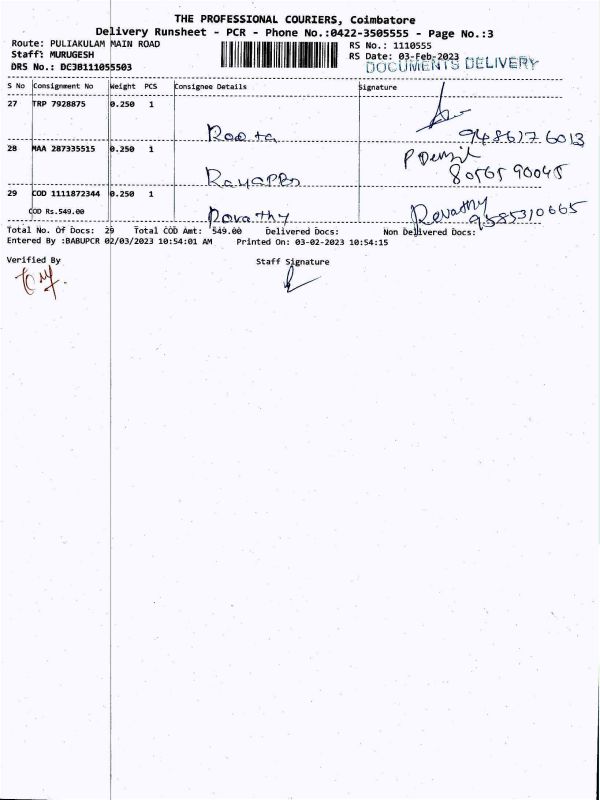 THE PROFESSIONAL COURIERS, Coimbatore
Delivery Runsheet - PCR - Phone No.:0422-3505555 - Page No.:3
Route: PULIAKULAM MAIN ROAD RS No.: 1110555
Staff: MURUGESH RS Date: 03-Feb-2023
DRS No.: DC3B111055503 DOCUMENTS DELIVERY
S No Consignment No Weight PCS Consignee Details Signature
27 TRP 7928875 0.250 1
Roota 9486176013
28 MAA 287335515 0.250 1 P Denzil
Rayappen 8056590045
29 COD 1111872344 0.250 1 Revathy
COD Rs.549.00 Revathy 9585310665
Total No. Of Docs: 29 Total COD Amt: 549.00 Delivered Docs: Non Delivered Docs:
Entered By :BABUPCR 02/03/2023 10:54:01 AM Printed On: 03-02-2023 10:54:15
Verified By Staff Signature